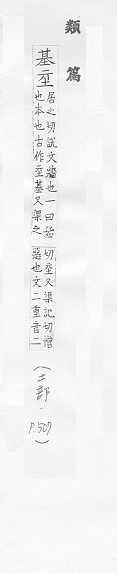 類篇
基坖
居之切說文牆也一曰始
也本也古作坖基又渠之
切坖又渠記切憎
惡也文二重音二
(土部.
P.507)